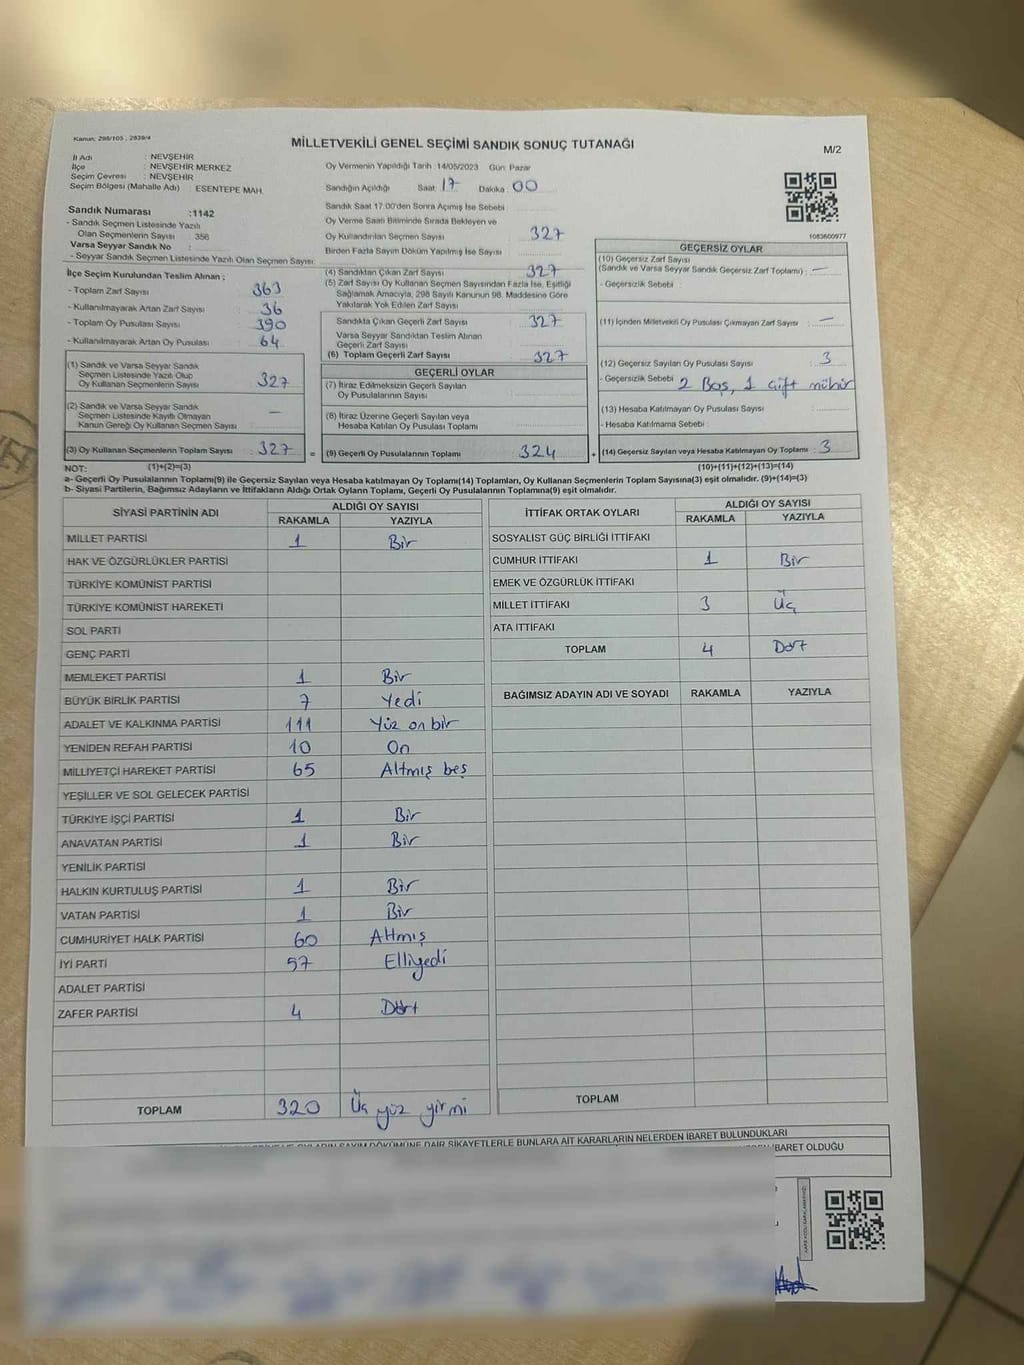 Kanun: 298/105 , 2839/4
MİLLETVEKİLİ GENEL SEÇİMİ SANDIK SONUÇ TUTANAĞI
M/2
İl Adı : NEVŞEHİR
İlçe : NEVŞEHİR MERKEZ
Seçim Çevresi : NEVŞEHİR
Seçim Bölgesi (Mahalle Adı) ESENTEPE MAH.
Oy Vermenin Yapıldığı Tarih :14/05/2023 Gün: Pazar
Sandığın Açıldığı Saat: 17 Dakika: 00
Sandık Saat 17.00'den Sonra Açımış İse Sebebi
Oy Verme Saati Bitiminde Sırada Bekleyen ve
Oy Kullandırılan Seçmen Sayısı 327
Birden Fazla Sayım Döküm Yapılmış İse Sayısı
1083600977
Sandık Numarası :1142
- Sandık Seçmen Listesinde Yazılı
Olan Seçmenlerin Sayısı : 356
Varsa Seyyar Sandık No :
- Seyyar Sandık Seçmen Listesinde Yazılı Olan Seçmen Sayısı:
İlçe Seçim Kurulundan Teslim Alınan ;
- Toplam Zarf Sayısı : 363
- Kullanılmayarak Artan Zarf Sayısı : 36
- Toplam Oy Pusulası Sayısı : 390
- Kullanılmayarak Artan Oy Pusulası : 64
(1) Sandık ve Varsa Seyyar Sandık
Seçmen Listesinde Yazılı Olup
Oy Kullanan Seçmenlerin Sayısı : 327
(2) Sandık ve Varsa Seyyar Sandık
Seçmen Listesinde Kayıtlı Olmayan
Kanun Gereği Oy Kullanan Seçmen Sayısı : —
(3) Oy Kullanan Seçmenlerin Toplam Sayısı : 327 =
(4) Sandıktan Çıkan Zarf Sayısı 327
(5) Zarf Sayısı Oy Kullanan Seçmen Sayısından Fazla İse, Eşitliği
Sağlamak Amacıyla, 298 Sayılı Kanunun 98. Maddesine Göre
Yakılarak Yok Edilen Zarf Sayısı
Sandıkta Çıkan Geçerli Zarf Sayısı 327
Varsa Seyyar Sandıktan Teslim Alınan
Geçerli Zarf Sayısı
(6) Toplam Geçerli Zarf Sayısı 327
GEÇERLİ OYLAR
(7) İtiraz Edilmeksizin Geçerli Sayılan
Oy Pusulalarının Sayısı
(8) İtiraz Üzerine Geçerli Sayılan veya
Hesaba Katılan Oy Pusulası Toplamı
(9) Geçerli Oy Pusulalarının Toplamı 324 +
GEÇERSİZ OYLAR
(10) Geçersiz Zarf Sayısı
(Sandık ve Varsa Seyyar Sandık Geçersiz Zarf Toplamı) : —
- Geçersizlik Sebebi :
(11) İçinden Milletvekili Oy Pusulası Çıkmayan Zarf Sayısı : —
(12) Geçersiz Sayılan Oy Pusulası Sayısı : 3
- Geçersizlik Sebebi : 2 Boş, 1 Çift mühür
(13) Hesaba Katılmayan Oy Pusulası Sayısı
- Hesaba Katılmama Sebebi :
(14) Geçersiz Sayılan veya Hesaba Katılmayan Oy Toplamı : 3
NOT: (1)+(2)=(3) (10)+(11)+(12)+(13)=(14)
a- Geçerli Oy Pusulalarının Toplamı(9) ile Geçersiz Sayılan veya Hesaba katılmayan Oy Toplamı(14) Toplamları, Oy Kullanan Seçmenlerin Toplam Sayısına(3) eşit olmalıdır. (9)+(14)=(3)
b- Siyasi Partilerin, Bağımsız Adayların ve İttifakların Aldığı Ortak Oyların Toplamı, Geçerli Oy Pusulalarının Toplamına(9) eşit olmalıdır.
SİYASİ PARTİNİN ADI ALDIĞI OY SAYISI
RAKAMLA YAZIYLA
MİLLET PARTİSİ 1 Bir
HAK VE ÖZGÜRLÜKLER PARTİSİ
TÜRKİYE KOMÜNİST PARTİSİ
TÜRKİYE KOMÜNİST HAREKETİ
SOL PARTİ
GENÇ PARTİ
MEMLEKET PARTİSİ 1 Bir
BÜYÜK BİRLİK PARTİSİ 7 Yedi
ADALET VE KALKINMA PARTİSİ 111 Yüz on bir
YENİDEN REFAH PARTİSİ 10 On
MİLLİYETÇİ HAREKET PARTİSİ 65 Altmış beş
YEŞİLLER VE SOL GELECEK PARTİSİ
TÜRKİYE İŞÇİ PARTİSİ 1 Bir
ANAVATAN PARTİSİ 1 Bir
YENİLİK PARTİSİ
HALKIN KURTULUŞ PARTİSİ 1 Bir
VATAN PARTİSİ 1 Bir
CUMHURİYET HALK PARTİSİ 60 Altmış
İYİ PARTİ 57 Elliyedi
ADALET PARTİSİ
ZAFER PARTİSİ 4 Dört
TOPLAM 320 Üç yüz yirmi
İTTİFAK ORTAK OYLARI ALDIĞI OY SAYISI
RAKAMLA YAZIYLA
SOSYALİST GÜÇ BİRLİĞİ İTTİFAKI
CUMHUR İTTİFAKI 1 Bir
EMEK VE ÖZGÜRLÜK İTTİFAKI
MİLLET İTTİFAKI 3 Üç
ATA İTTİFAKI
TOPLAM 4 Dört
BAĞIMSIZ ADAYIN ADI VE SOYADI RAKAMLA YAZIYLA
TOPLAM
OYLARIN SAYIM DÖKÜMÜNE DAİR ŞİKAYETLERLE BUNLARA AİT KARARLARIN NELERDEN İBARET BULUNDUKLARI
İBARET OLDUĞU